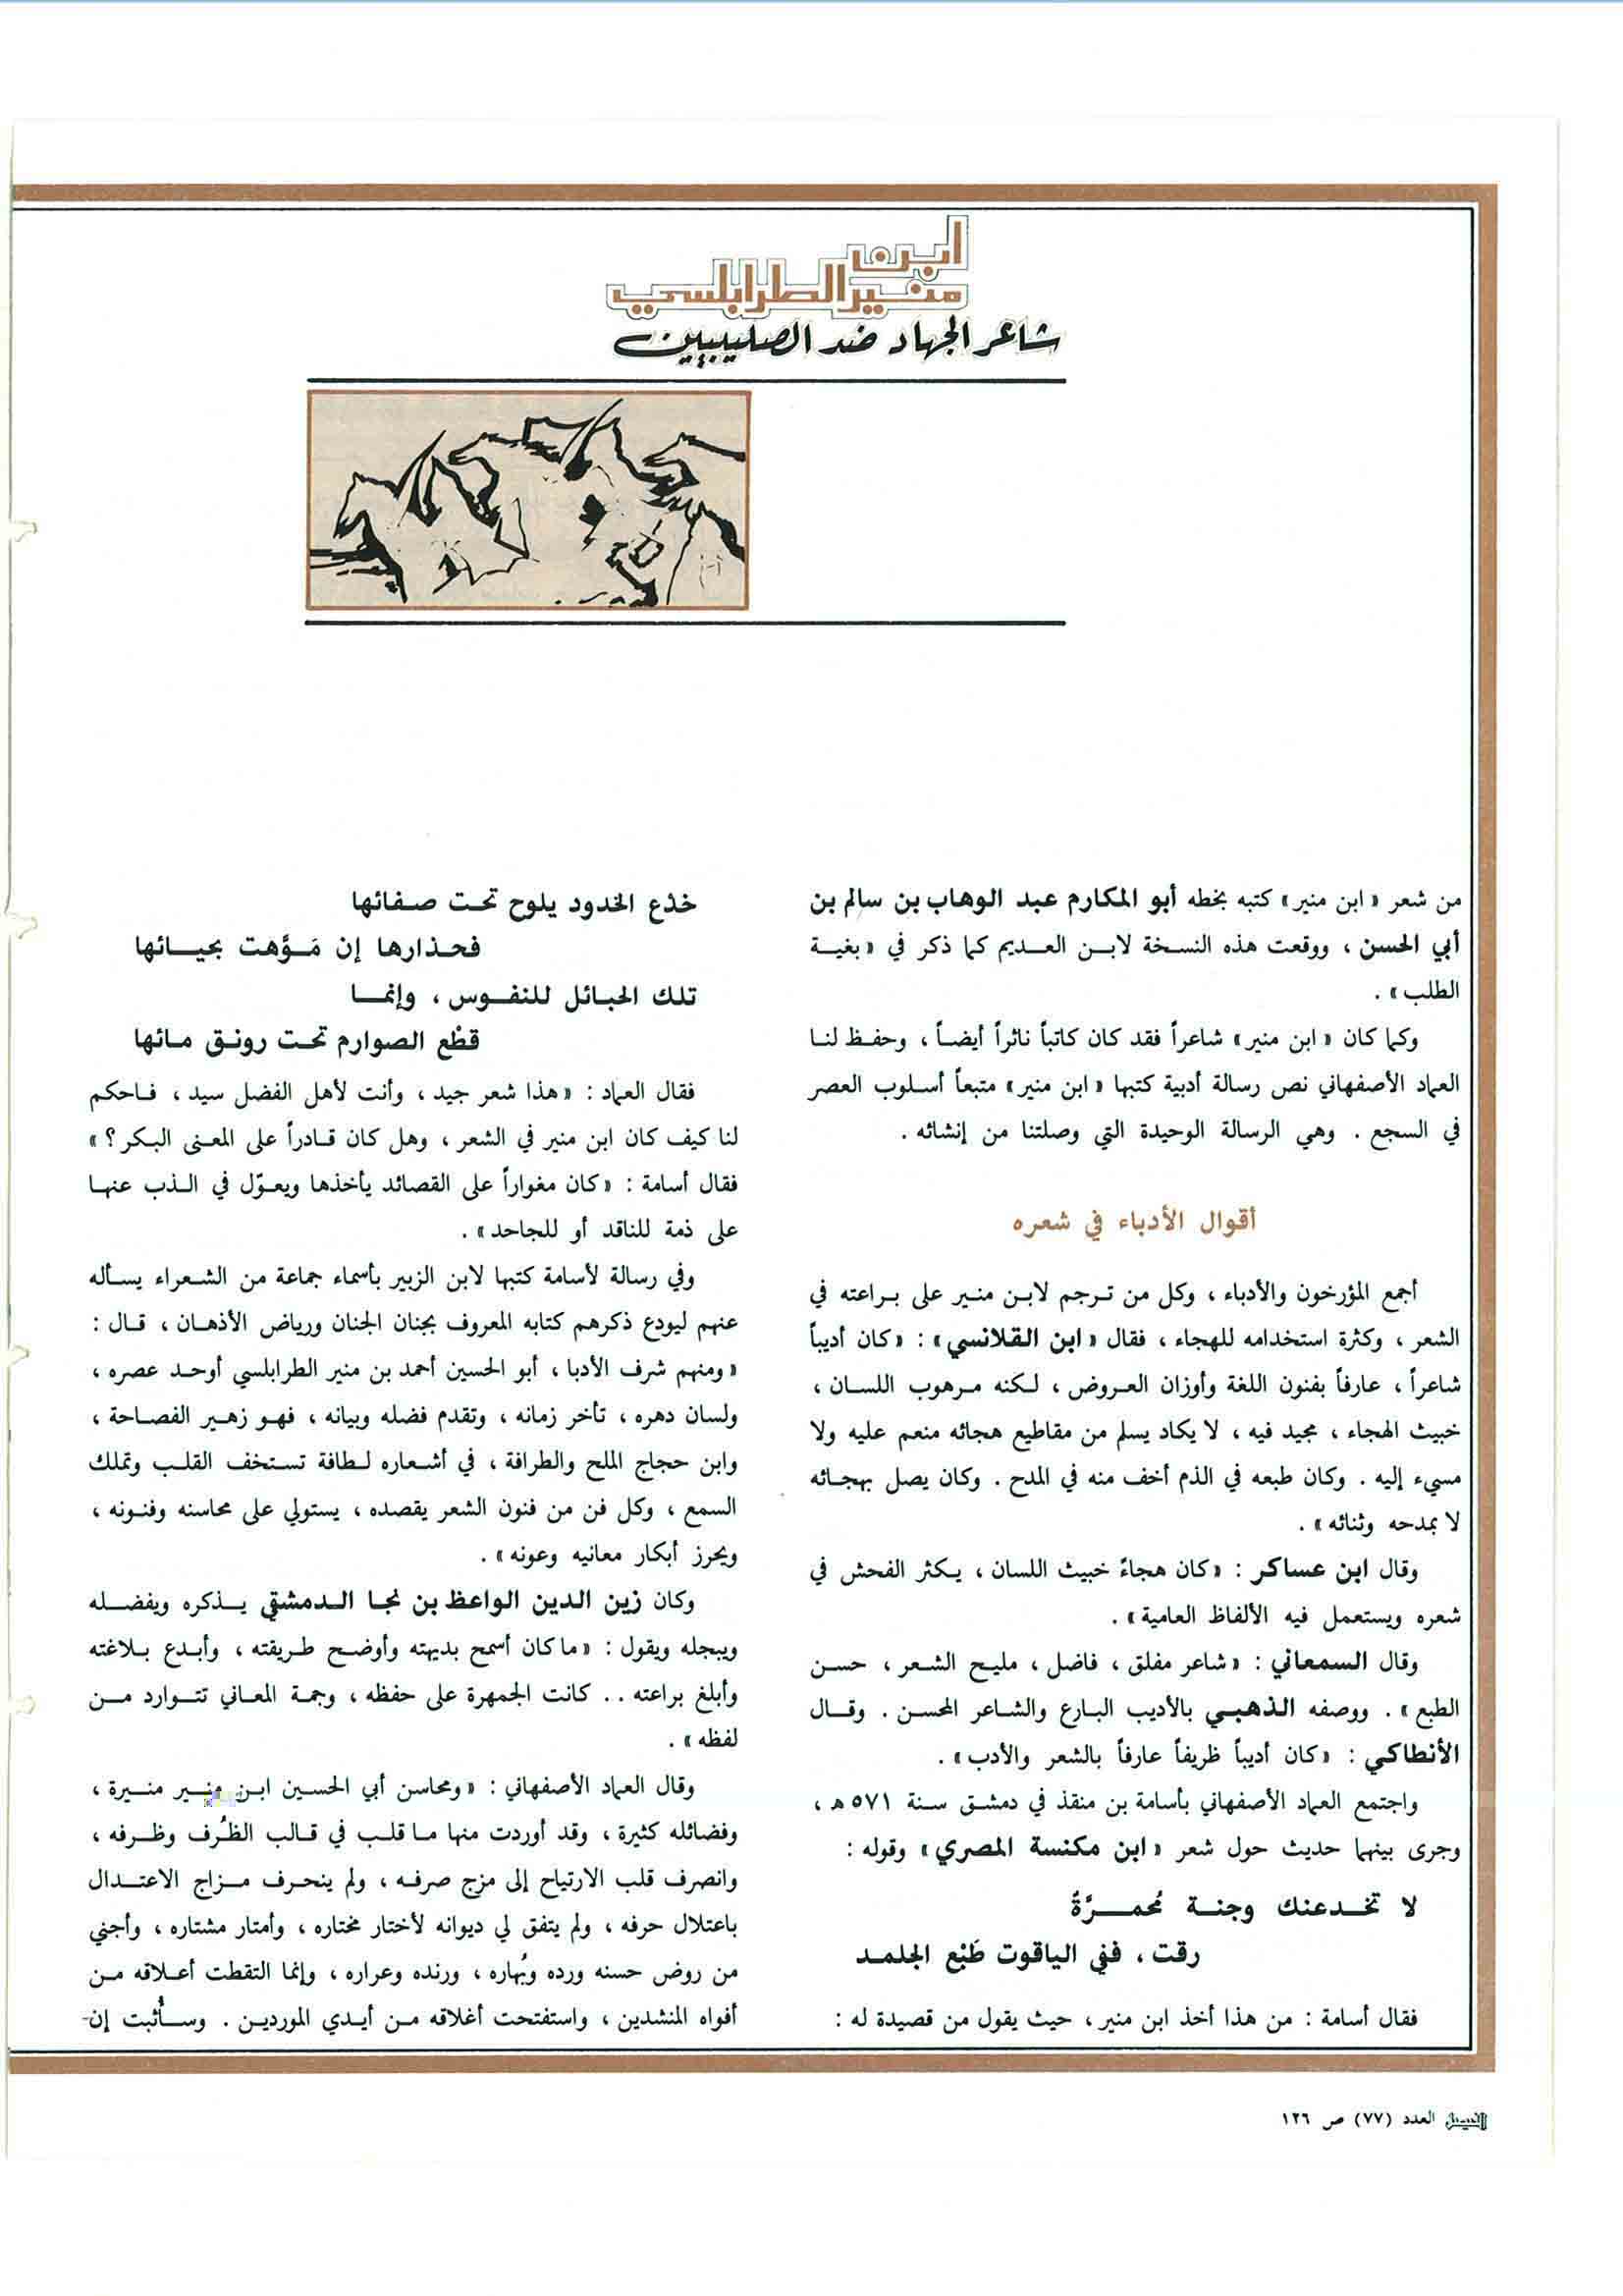 ابن
منير الطرابلسي
شاعر الجهاد ضد الصليبيين
من شعر «ابن منير» كتبه بخطه أبو المكارم عبد الوهاب بن سالم بن
أبي الحسن ، ووقعت هذه النسخة لابن العديم كما ذكر في «بغية
الطلب» .
وكما كان «ابن منير» شاعراً فقد كان كاتباً ناثراً أيضاً ، وحفظ لنا
العماد الأصفهاني نص رسالة أدبية كتبها «ابن منير» متبعاً أسلوب العصر
في السجع . وهي الرسالة الوحيدة التي وصلتنا من إنشائه .
أقوال الأدباء في شعره
أجمع المؤرخون والأدباء ، وكل من ترجم لابن منير على براعته في
الشعر ، وكثرة استخدامه للهجاء ، فقال «ابن القلانسي» : «كان أديباً
شاعراً ، عارفاً بفنون اللغة وأوزان العروض ، لكنه مرهوب اللسان ،
خبيث الهجاء ، مجيد فيه ، لا يكاد يسلم من مقاطيع هجائه منعم عليه ولا
مسيء إليه . وكان طبعه في الذم أخف منه في المدح . وكان يصل بهجائه
لا بمدحه وثنائه» .
وقال ابن عساكر : «كان هجاءً خبيث اللسان ، يكثر الفحش في
شعره ويستعمل فيه الألفاظ العامية» .
وقال السمعاني : «شاعر مفلق ، فاضل ، مليح الشعر ، حسن
الطبع» . ووصفه الذهبي بالأديب البارع والشاعر المحسن . وقال
الأنطاكي : «كان أديباً ظريفاً عارفاً بالشعر والأدب» .
واجتمع العماد الأصفهاني بأسامة بن منقذ في دمشق سنة ٥٧١هـ ،
وجرى بينهما حديث حول شعر «ابن مكنسة المصري» وقوله :
لا تخدعنك وجنة مُحمرَّةٌ
رقت ، ففي الياقوت طَبْع الجلمد
فقال أسامة : من هذا أخذ ابن منير ، حيث يقول من قصيدة له :
خدْع الخدود يلوح تحت صفائها
فحذارها إن مَوَّهت بحيائها
تلك الحبائل للنفوس ، وإنما
قطْع الصوارم تحت رونق مائها
فقال العماد : «هذا شعر جيد ، وأنت لأهل الفضل سيد ، فاحكم
لنا كيف كان ابن منير في الشعر ، وهل كان قادراً على المعنى البكر ؟»
فقال أسامة : «كان مغواراً على القصائد يأخذها ويعوّل في الذب عنها
على ذمة للناقد أو للجاحد» .
وفي رسالة لأسامة كتبها لابن الزبير بأسماء جماعة من الشعراء يسأله
عنهم ليودع ذكرهم كتابه المعروف بجنان الجنان ورياض الأذهان ، قال :
«ومنهم شرف الأدبا ، أبو الحسين أحمد بن منير الطرابلسي أوحد عصره ،
ولسان دهره ، تأخر زمانه ، وتقدم فضله وبيانه ، فهو زهير الفصاحة ،
وابن حجاج الملح والطرافة ، في أشعاره لطافة تستخف القلب وتملك
السمع ، وكل فن من فنون الشعر يقصده ، يستولي على محاسنه وفنونه ،
ويحرز أبكار معانيه وعونه» .
وكان زين الدين الواعظ بن نجا الدمشقي يذكره ويفضله
ويبجله ويقول : «ما كان أسمح بديهته وأوضح طريقته ، وأبدع بلاغته
وأبلغ براعته .. كانت الجمهرة على حفظه ، وجمة المعاني تتوارد من
لفظه» .
وقال العماد الأصفهاني : «ومحاسن أبي الحسين ابن منير منيرة ،
وفضائله كثيرة ، وقد أوردت منها ما قلب في قالب الظُرف وظرفه ،
وانصرف قلب الارتياح إلى مزج صرفه ، ولم ينحرف مزاج الاعتدال
باعتلال حرفه ، ولم يتفق لي ديوانه لأختار مختاره ، وأمتار مشتاره ، وأجني
من روض حسنه ورده وبُهاره ، ورنده وعراره ، وإنما التقطت أعلاقه من
أفواه المنشدين ، واستفتحت أغلاقه من أيدي الموردين . وسأُثبت إن
الفيصل العدد (٧٧) ص ١٢٦